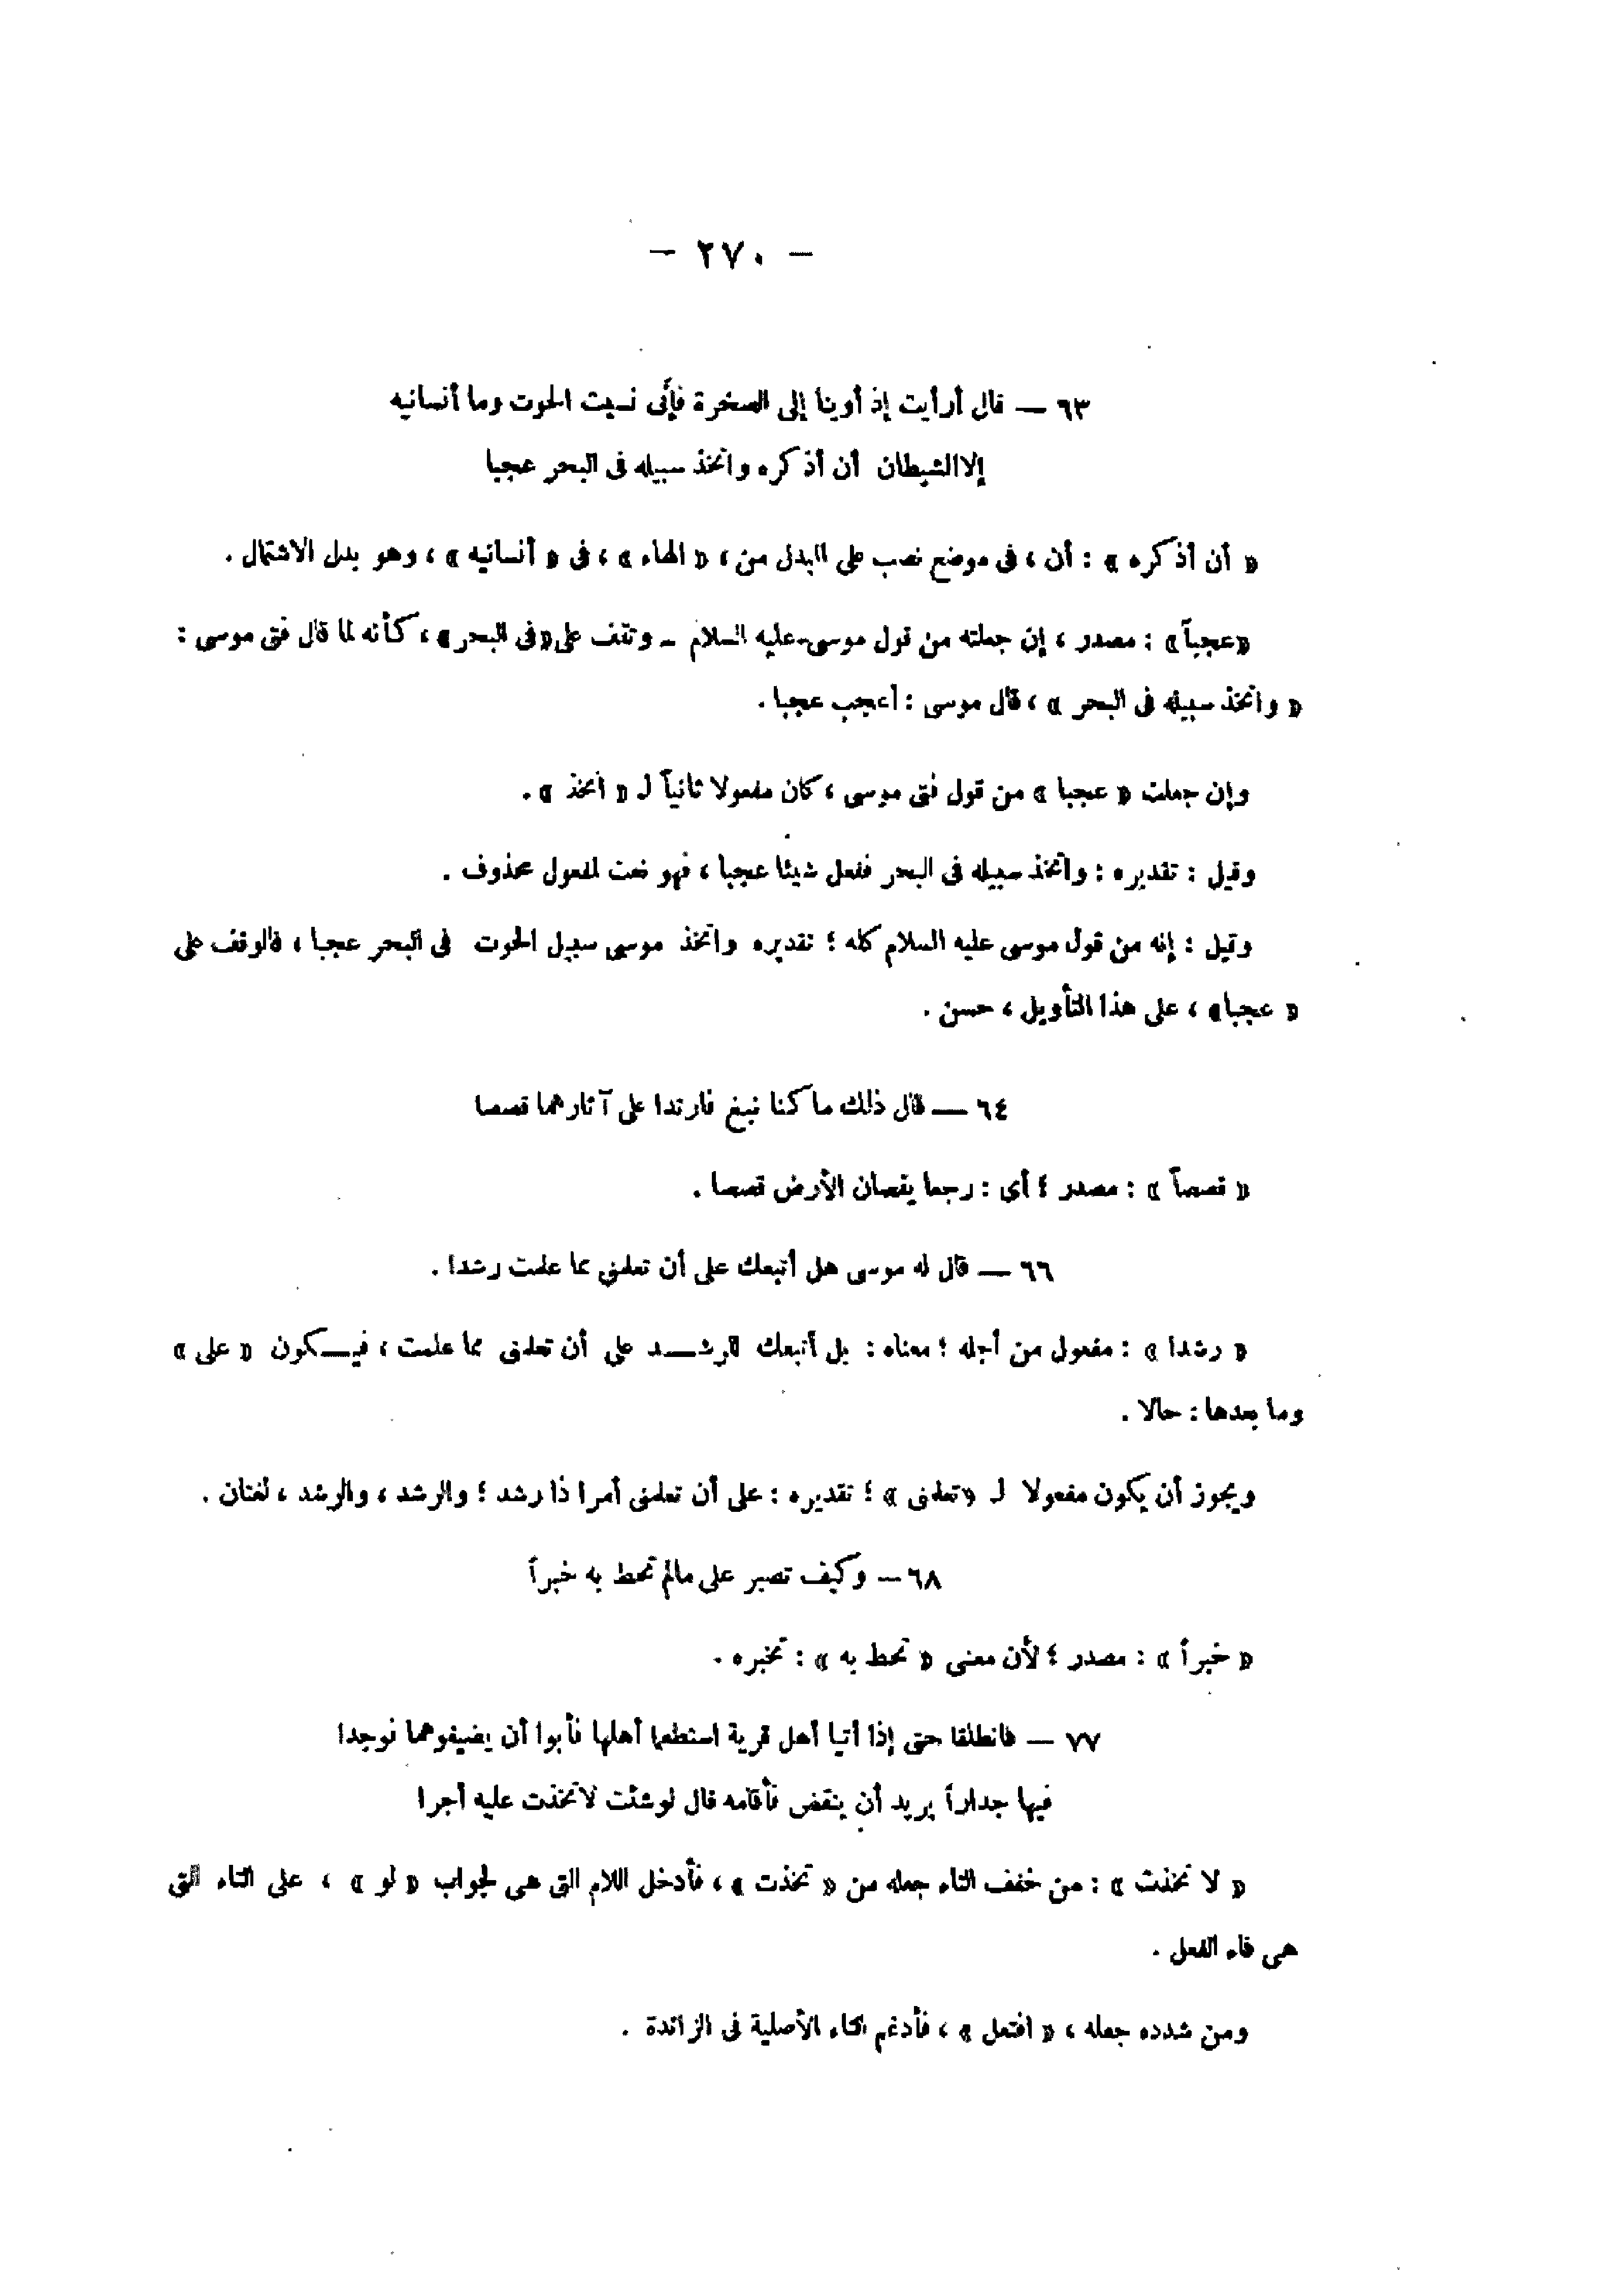 — ٢٧٠ —
٦٣ — قال أرأيت إذ أوينا إلى الصخرة فإنى نسيت الحوت وما أنسانيه
إلا الشيطان أن أذكره واتخذ سبيله فى البحر عجبا
« أن أذكره » : أن ، فى موضع نصب على البدل من ، « الهاء » ، فى « أنسانيه » ، وهو بدل الاشتمال .
«عجباً» : مصدر ، إن جعلته من قول موسى-عليه السلام – وتقف على«فى البحر» ، كأنه لما قال فتى موسى :
« واتخذ سبيله فى البحر » ، قال موسى : أعجب عجبا .
وإن جعلت « عجبا » من قول فتى موسى ، كان مفعولا ثانياً لـ « اتخذ » .
وقيل : تقديره : واتخذ سبيله فى البحر ففعل شيئا عجبا ، فهو نعت لمفعول محذوف .
وقيل : إنه من قول موسى عليه السلام كله ؛ تقديره واتخذ موسى سبيل الحوت فى البحر عجبا ، فالوقف على
« عجبا» ، على هذا التأويل ، حسن .
٦٤ — قال ذلك ما كنا نبغ فارتدا على آثارهما قصصا
« قصصاً » : مصدر ؛ أى : رجعا يقصان الأرض قصصا .
٦٦ — قال له موسى هل أتبعك على أن تعلمني مما علمت رشدا .
« رشدا » : مفعول من أجله ؛ معناه : بل أتبعك للرشـــد على أن تعلمنى مما علمت ، فيـــكون « على »
وما بعدها : حالا .
ويجوز أن يكون مفعولا لـ «تعلمنى » ؛ تقديره : على أن تعلمنى أمرا ذا رشد ؛ والرشد ، والرشد ، لغتان .
٦٨ — وكيف تصبر على مالم تحط به خبراً
« خبراً » : مصدر ؛ لأن معنى « تحط به » : تخبره .
٧٧ — فانطلقا حتى إذا أتيا أهل قرية استطعما أهلها فأبوا أن يضيفوهما فوجدا
فيها جداراً يريد أن ينقض فأقامه قال لوشئت لاتخذت عليه أجرا
« لا تخذت » : من خفف التاء جعله من « تخذت » ، فأدخل اللام التى هى لجواب « لو » ، على التاء التى
هى فاء الفعل .
ومن شدده جعله ، « افتعل » ، فأدغم التاء الأصلية فى الزائدة .